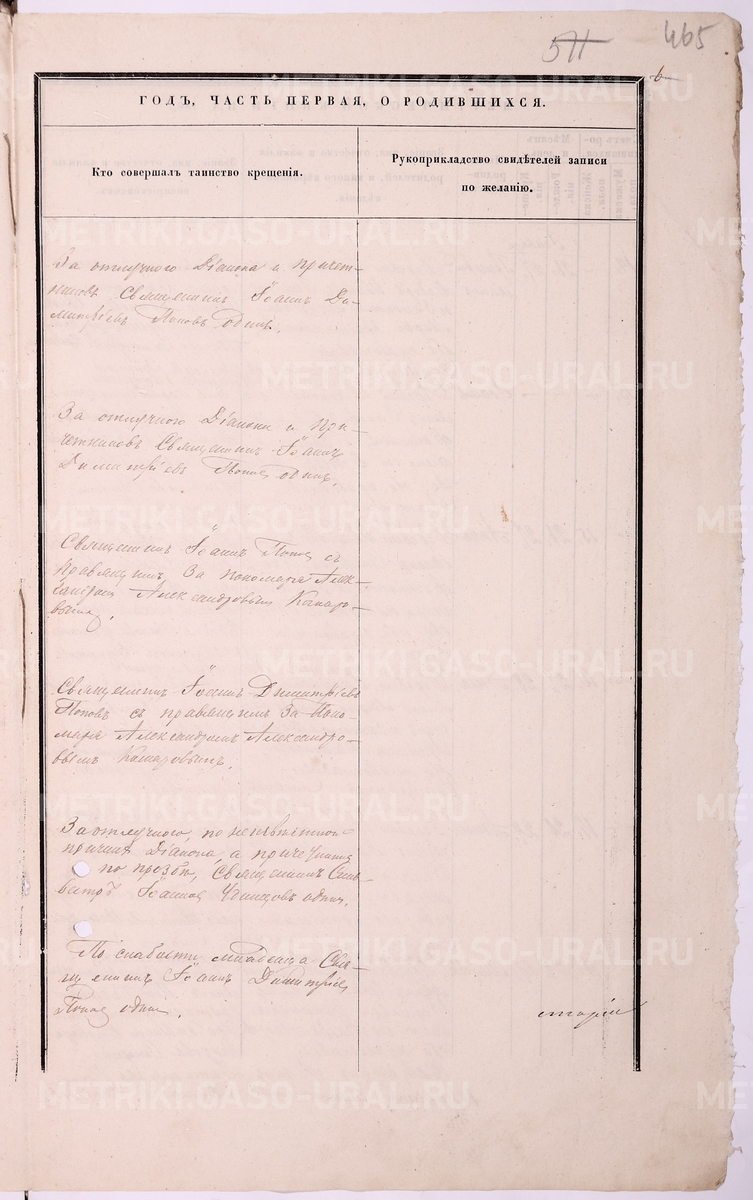 511 465
6
ГОДЪ, ЧАСТЬ ПЕРВАЯ, О РОДИВШИХСЯ.
Кто совершалъ таинство крещенія.
Рукоприкладство свидѣтелей записи
по желанію.
За отлучного Діакона и Причет-
никовъ Священникъ Іоаннъ Ди-
митріевъ Поповъ одинъ.
За отлучного Діакона и При-
четниковъ Священникъ Іоаннъ
Димитріевъ Поповъ одинъ.
Священникъ Іоаннъ Поповъ съ
правящимъ За пономаря Алек-
сандромъ Александровымъ
Священникъ Іоаннъ Димитріевъ
Поповъ съ правящимъ За Поно-
маря Александромъ Александро-
вымъ
За отлучного, по неизвѣстной
причинѣ Діакона, а причетника
по прозбѣ, Священникъ Силь-
вестръ Іоанновъ одинъ.
По слабости младенца Свя-
щенникъ Іоаннъ Димитріевъ
Поповъ одинъ.
METRIKI.GASO-URAL.RU